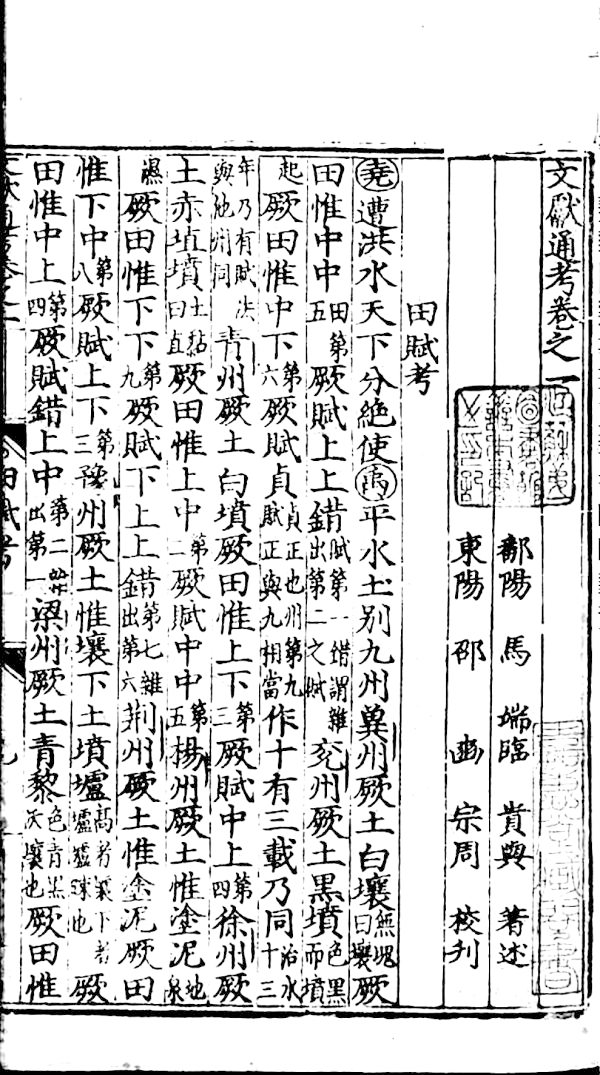 文獻通考卷之一
鄱陽 馬 端臨 貴與 著述
東陽 邵 豳 宗周 校刋
田賦考
堯遭洪水天下分絶使禹平水土别九州冀州厥土白壤無塊曰壤厥
田惟中中田第五厥賦上上錯賦第一錯謂雜出第二之賦兖州厥土黒墳色黒而墳
起厥田惟中下第六厥賦貞貞正也州第九賦正與九相當作十有三載乃同治水十三
年乃有賦法與他州同青州厥土白墳厥田惟上下第三厥賦中上第四徐州厥
土赤埴墳土黏曰埴厥田惟上中第二厥賦中中第五楊州厥土惟塗泥地泉
濕厥田惟下下第九厥賦下上上錯第七雜出第六荆州厥土惟塗泥厥田
惟下中第八厥賦上下第三豫州厥土惟壤下土墳壚高者壤下者壚壚疎也厥
田惟中上第四厥賦錯上中第二雜出第一梁州厥土青黎色青黒沃壤也厥田惟
田賦考